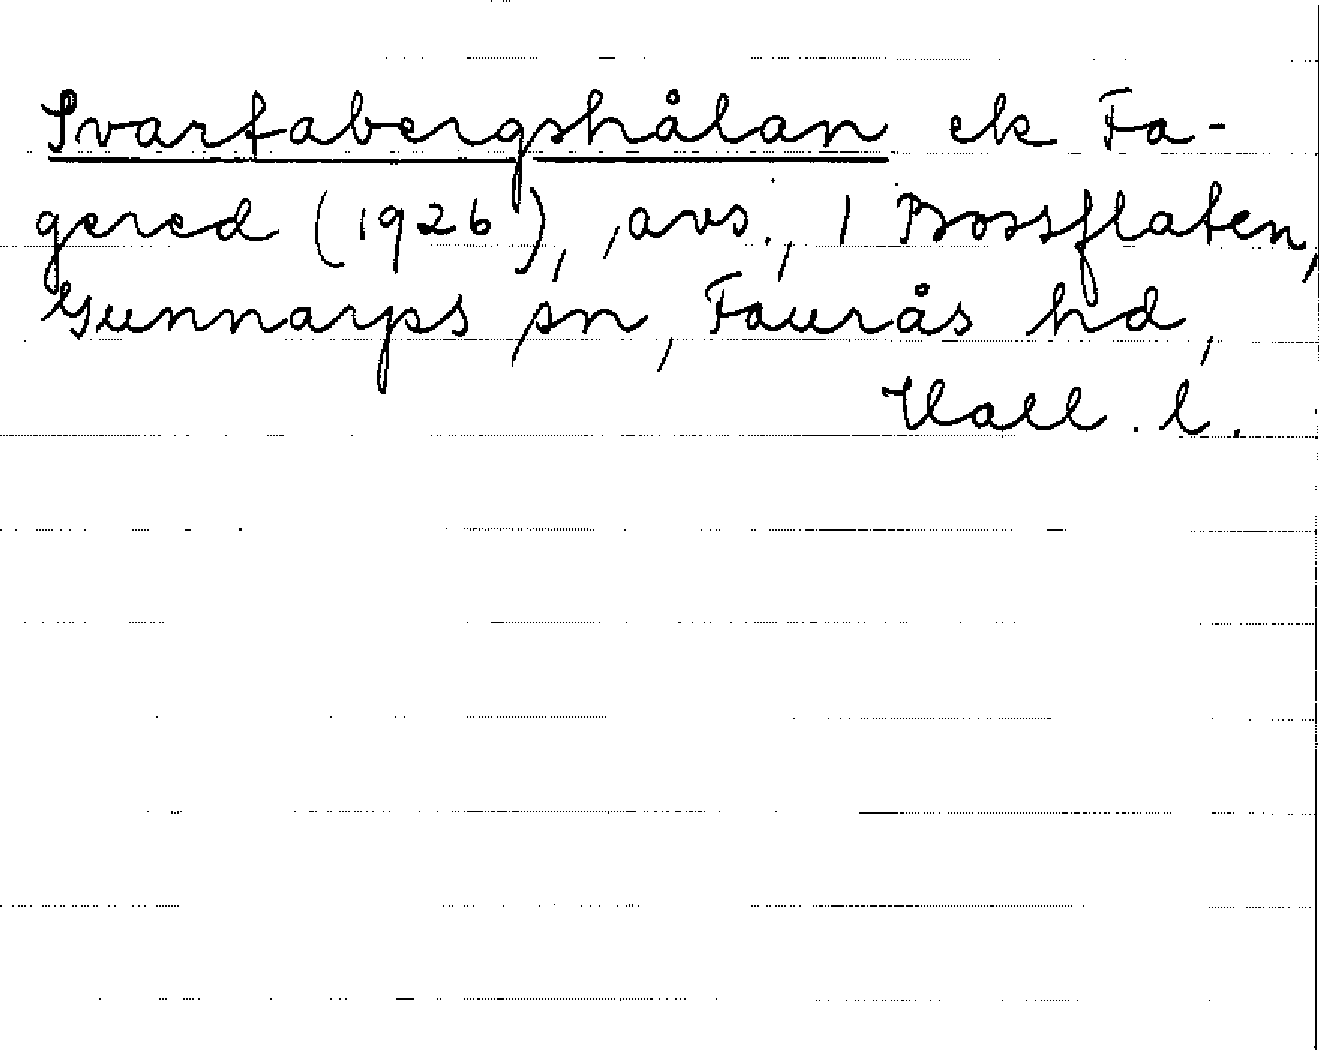 Svartabergshålan ek Fa-
gered (1926), avs., 1 Bossflaten,
Gunnarps sn, Faurås hd,
Hall. l.